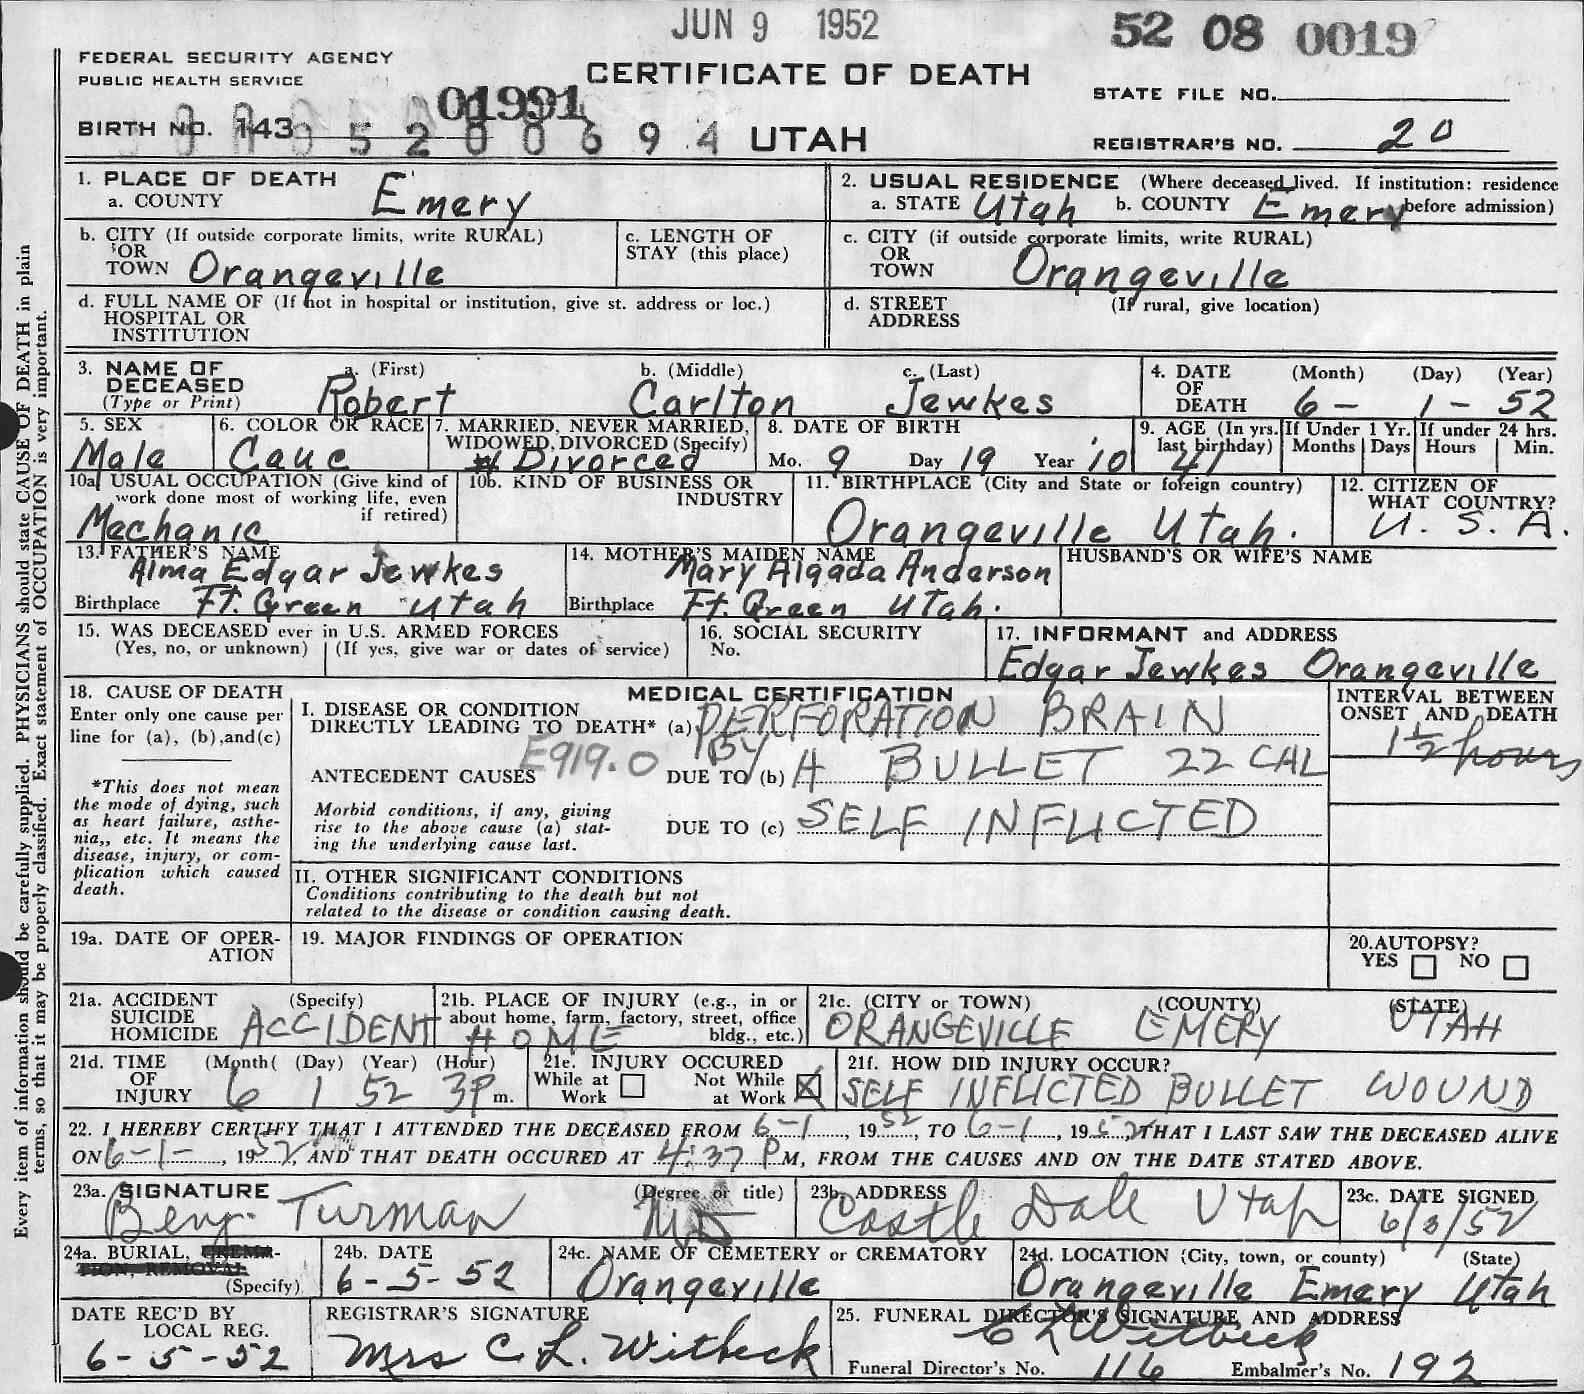 JUN 9 1952
52 08 0019
FEDERAL SECURITY AGENCY
PUBLIC HEALTH SERVICE
CERTIFICATE OF DEATH
STATE FILE NO.
01991
BIRTH NO. 143
5 2 0 0 6 9 4
UTAH
REGISTRAR'S NO. 20
1. PLACE OF DEATH
a. COUNTY Emery
2. USUAL RESIDENCE (Where deceased lived. If institution: residence before admission)
a. STATE Utah b. COUNTY Emery
b. CITY (If outside corporate limits, write RURAL)
OR
TOWN Orangeville
c. LENGTH OF
STAY (this place)
c. CITY (if outside corporate limits, write RURAL)
OR
TOWN Orangeville
d. FULL NAME OF (If not in hospital or institution, give st. address or loc.)
HOSPITAL OR
INSTITUTION
d. STREET (If rural, give location)
ADDRESS
3. NAME OF
DECEASED
(Type or Print)
a. (First) b. (Middle) c. (Last)
Robert Carlton Jewkes
4. DATE (Month) (Day) (Year)
OF
DEATH 6 - 1 - 52
5. SEX
Male
6. COLOR OR RACE
Cauc
7. MARRIED, NEVER MARRIED,
WIDOWED, DIVORCED (Specify)
Divorced
8. DATE OF BIRTH
Mo. 9 Day 19 Year '10
9. AGE (In yrs.
last birthday) 41
If Under 1 Yr.
Months Days
If under 24 hrs.
Hours Min.
10a. USUAL OCCUPATION (Give kind of
work done most of working life, even
if retired)
Mechanic
10b. KIND OF BUSINESS OR
INDUSTRY
11. BIRTHPLACE (City and State or foreign country)
Orangeville Utah.
12. CITIZEN OF
WHAT COUNTRY?
U. S. A.
13. FATHER'S NAME
Alma Edgar Jewkes
Birthplace Ft. Green Utah
14. MOTHER'S MAIDEN NAME
Mary Algada Anderson
Birthplace Ft. Green Utah.
HUSBAND'S OR WIFE'S NAME
15. WAS DECEASED ever in U.S. ARMED FORCES
(Yes, no, or unknown) (If yes, give war or dates of service)
16. SOCIAL SECURITY
No.
17. INFORMANT and ADDRESS
Edgar Jewkes Orangeville
18. CAUSE OF DEATH
Enter only one cause per
line for (a), (b), and (c)
*This does not mean
the mode of dying, such
as heart failure, asthe-
nia,, etc. It means the
disease, injury, or com-
plication which caused
death.
MEDICAL CERTIFICATION
I. DISEASE OR CONDITION
DIRECTLY LEADING TO DEATH* (a) PERFORATION BRAIN
E919.0 BY
ANTECEDENT CAUSES DUE TO (b) A BULLET 22 CAL
Morbid conditions, if any, giving
rise to the above cause (a) stat-
ing the underlying cause last.
DUE TO (c) SELF INFLICTED
INTERVAL BETWEEN
ONSET AND DEATH
1 1/2 hours
II. OTHER SIGNIFICANT CONDITIONS
Conditions contributing to the death but not
related to the disease or condition causing death.
19a. DATE OF OPER-
ATION
19. MAJOR FINDINGS OF OPERATION
20. AUTOPSY?
YES NO
21a. ACCIDENT (Specify)
SUICIDE
HOMICIDE ACCIDENT
21b. PLACE OF INJURY (e.g., in or
about home, farm, factory, street, office
bldg., etc.)
HOME
21c. (CITY or TOWN) (COUNTY) (STATE)
ORANGEVILLE EMERY UTAH
21d. TIME (Month( (Day) (Year) (Hour)
OF
INJURY 6 1 52 3P m.
21e. INJURY OCCURED
While at Work Not While at Work X
21f. HOW DID INJURY OCCUR?
SELF INFLICTED BULLET WOUND
22. I HEREBY CERTIFY THAT I ATTENDED THE DECEASED FROM 6-1, 1952, TO 6-1, 1952, THAT I LAST SAW THE DECEASED ALIVE
ON 6-1-, 1952, AND THAT DEATH OCCURED AT 4:37 PM, FROM THE CAUSES AND ON THE DATE STATED ABOVE.
23a. SIGNATURE (Degree or title)
Benj. Turman MD
23b. ADDRESS
Castle Dale Utah
23c. DATE SIGNED
6/3/52
24a. BURIAL, CREMA-
TION, REMOVAL
(Specify)
24b. DATE
6-5-52
24c. NAME OF CEMETERY or CREMATORY
Orangeville
24d. LOCATION (City, town, or county) (State)
Orangeville Emery Utah
DATE REC'D BY
LOCAL REG.
6-5-52
REGISTRAR'S SIGNATURE
Mrs C. L. Witbeck
25. FUNERAL DIRECTOR'S SIGNATURE AND ADDRESS
C L Witbeck
Funeral Director's No. 116 Embalmer's No. 192
Every item of information should be carefully supplied. PHYSICIANS should state CAUSE OF DEATH in plain
terms, so that it may be properly classified. Exact statement of OCCUPATION is very important.